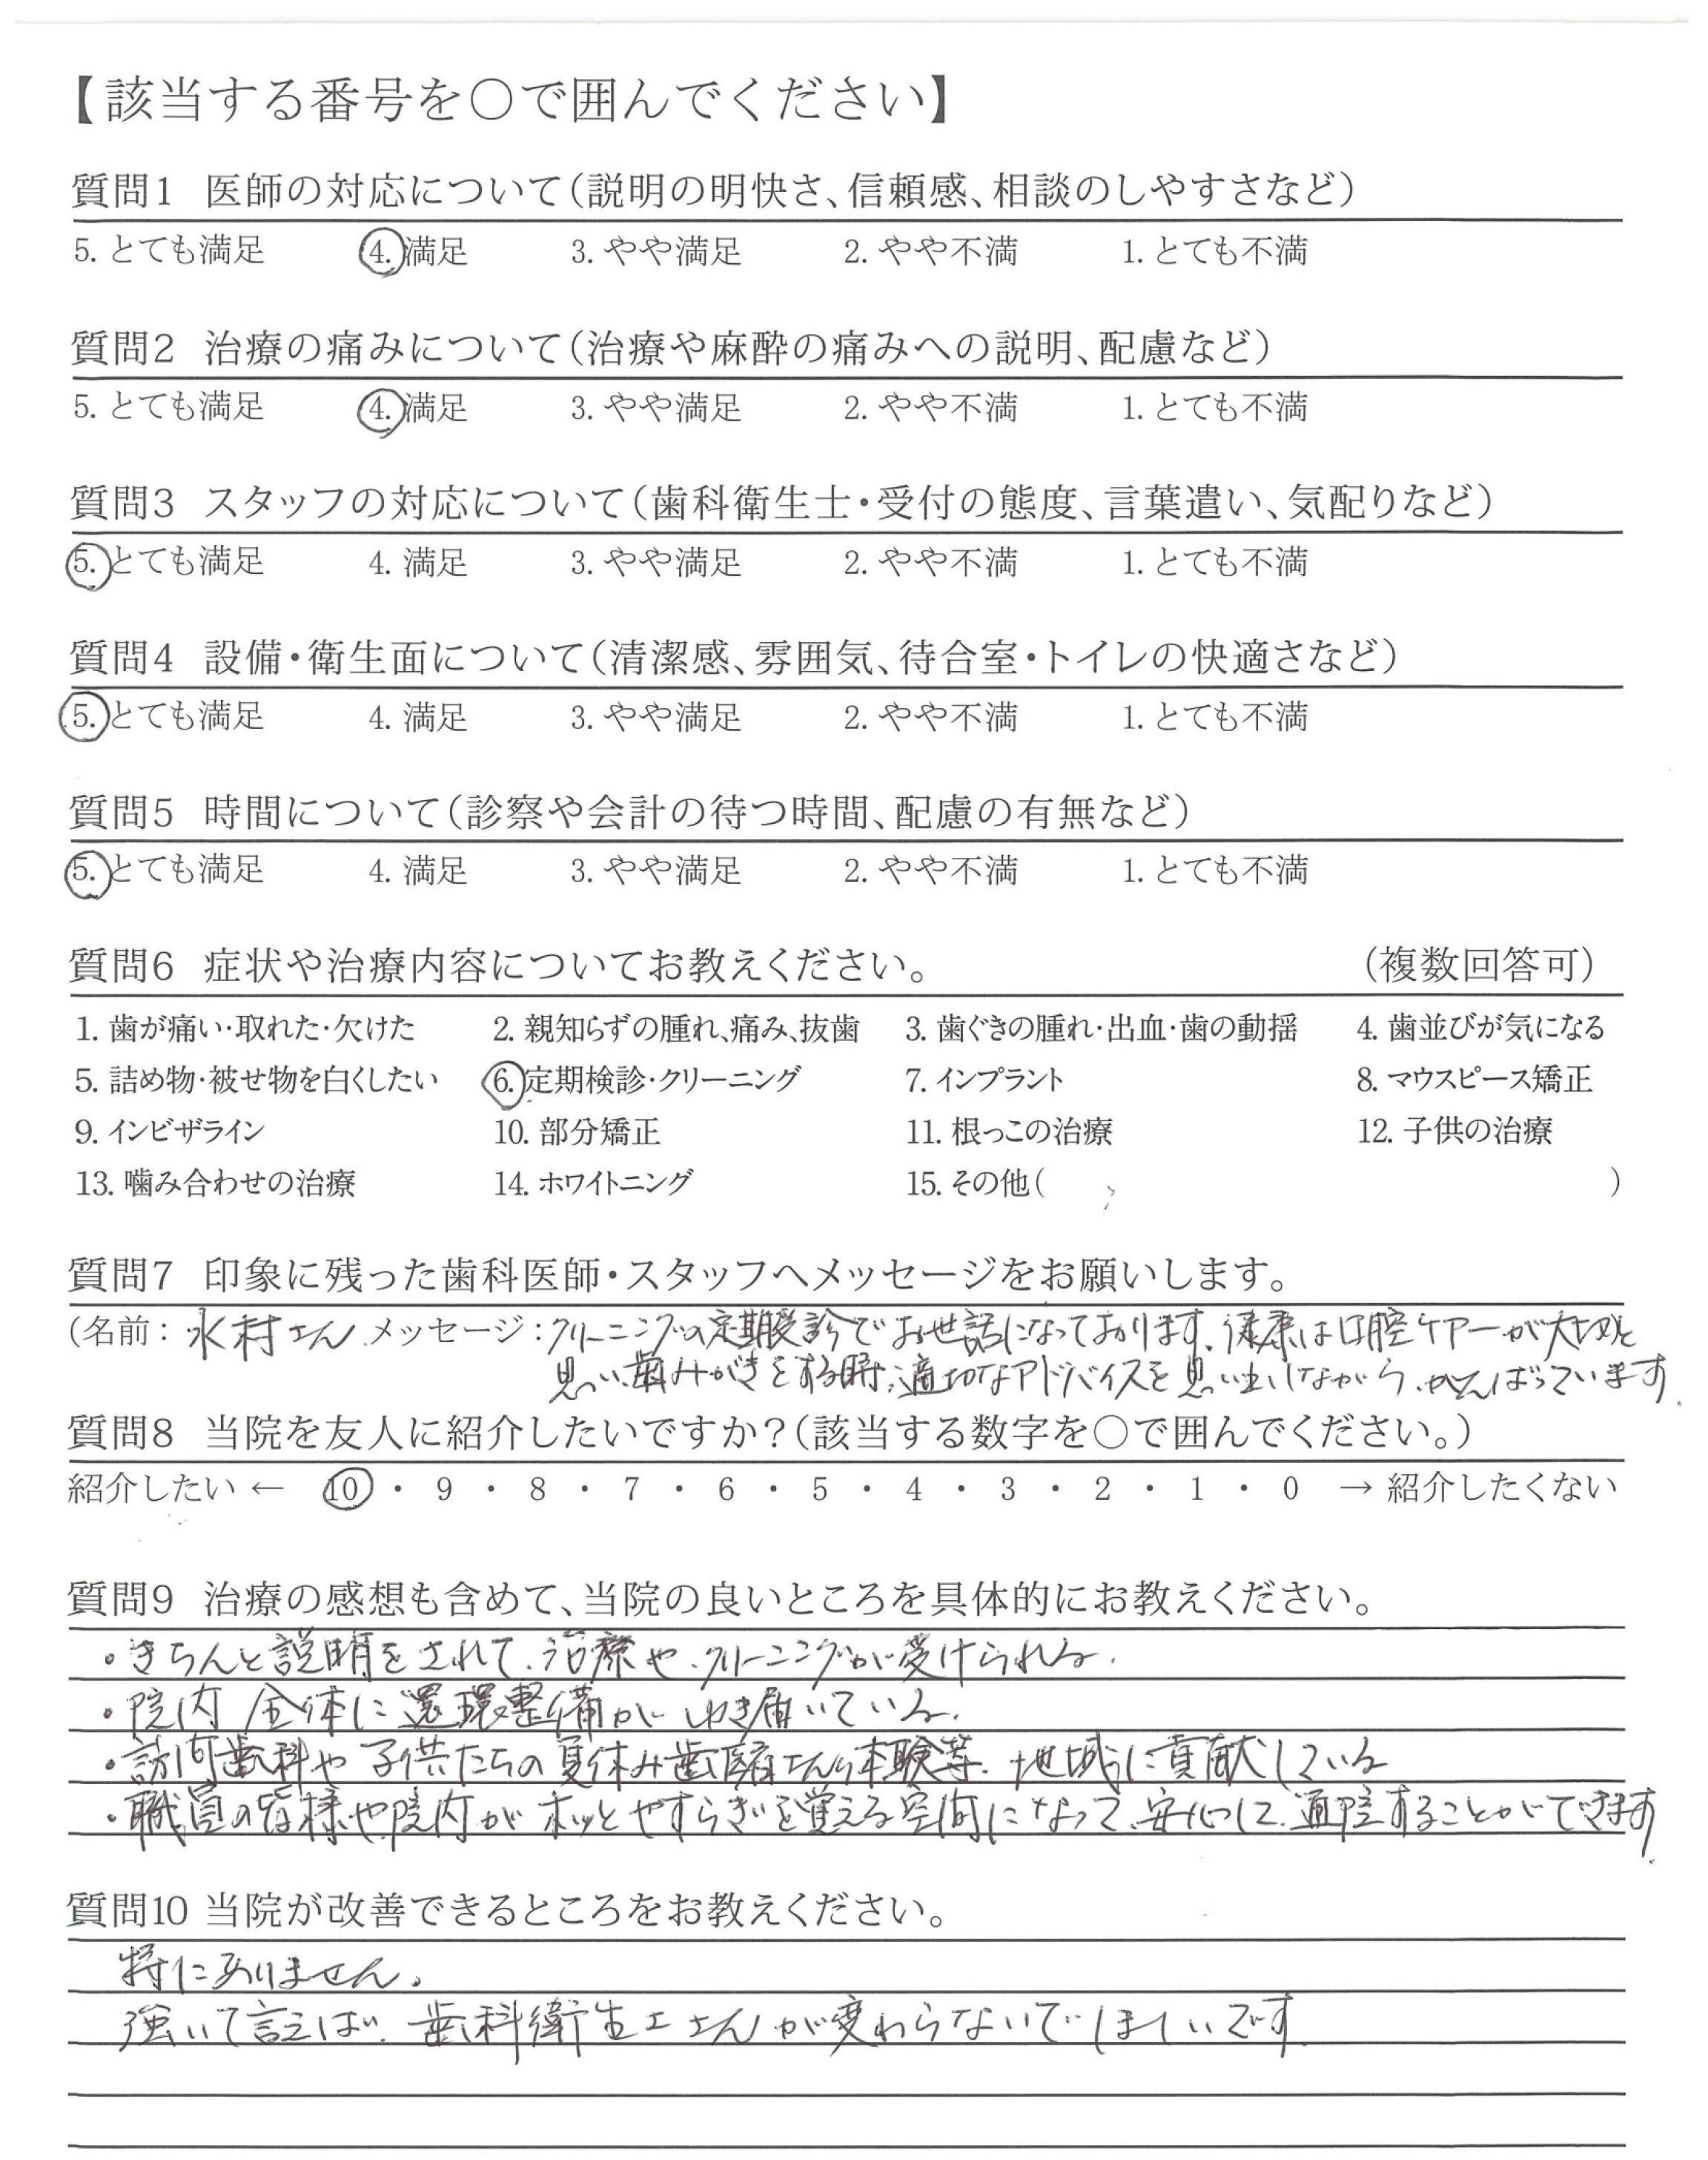 【該当する番号を○で囲んでください】
質問1 医師の対応について（説明の明快さ、信頼感、相談のしやすさなど）
5. とても満足 4. 満足 3. やや満足 2. やや不満 1. とても不満
質問2 治療の痛みについて（治療や麻酔の痛みへの説明、配慮など）
5. とても満足 4. 満足 3. やや満足 2. やや不満 1. とても不満
質問3 スタッフの対応について（歯科衛生士・受付の態度、言葉遣い、気配りなど）
5. とても満足 4. 満足 3. やや満足 2. やや不満 1. とても不満
質問4 設備・衛生面について（清潔感、雰囲気、待合室・トイレの快適さなど）
5. とても満足 4. 満足 3. やや満足 2. やや不満 1. とても不満
質問5 時間について（診察や会計の待つ時間、配慮の有無など）
5. とても満足 4. 満足 3. やや満足 2. やや不満 1. とても不満
質問6 症状や治療内容についてお教えください。 （複数回答可）
1. 歯が痛い・取れた・欠けた 2. 親知らずの腫れ、痛み、抜歯 3. 歯ぐきの腫れ・出血・歯の動揺 4. 歯並びが気になる
5. 詰め物・被せ物を白くしたい 6. 定期検診・クリーニング 7. インプラント 8. マウスピース矯正
9. インビザライン 10. 部分矯正 11. 根っこの治療 12. 子供の治療
13. 噛み合わせの治療 14. ホワイトニング 15. その他（ ）
質問7 印象に残った歯科医師・スタッフへメッセージをお願いします。
（名前：水村さん メッセージ：クリーニングの定期受診でお世話になっております。健康は口腔ケアーが大切と
思い、歯みがきをする時、適切なアドバイスを思い出しながら、がんばっています。
質問8 当院を友人に紹介したいですか？（該当する数字を○で囲んでください。）
紹介したい ← 10 ・ 9 ・ 8 ・ 7 ・ 6 ・ 5 ・ 4 ・ 3 ・ 2 ・ 1 ・ 0 → 紹介したくない
質問9 治療の感想も含めて、当院の良いところを具体的にお教えください。
・きちんと説明をされて、治療や、クリーニングが受けられる。
・院内全体に環境整備がいき届いている。
・訪問歯科や子供たちの夏休み歯医者さん体験等、地域に貢献している
・職員の皆様や院内がホッとやすらぎを覚える空間になって、安心して、通院することができます。
質問10 当院が改善できるところをお教えください。
特にありません。
強いて言えば、歯科衛生士さんが変わらないでほしいです